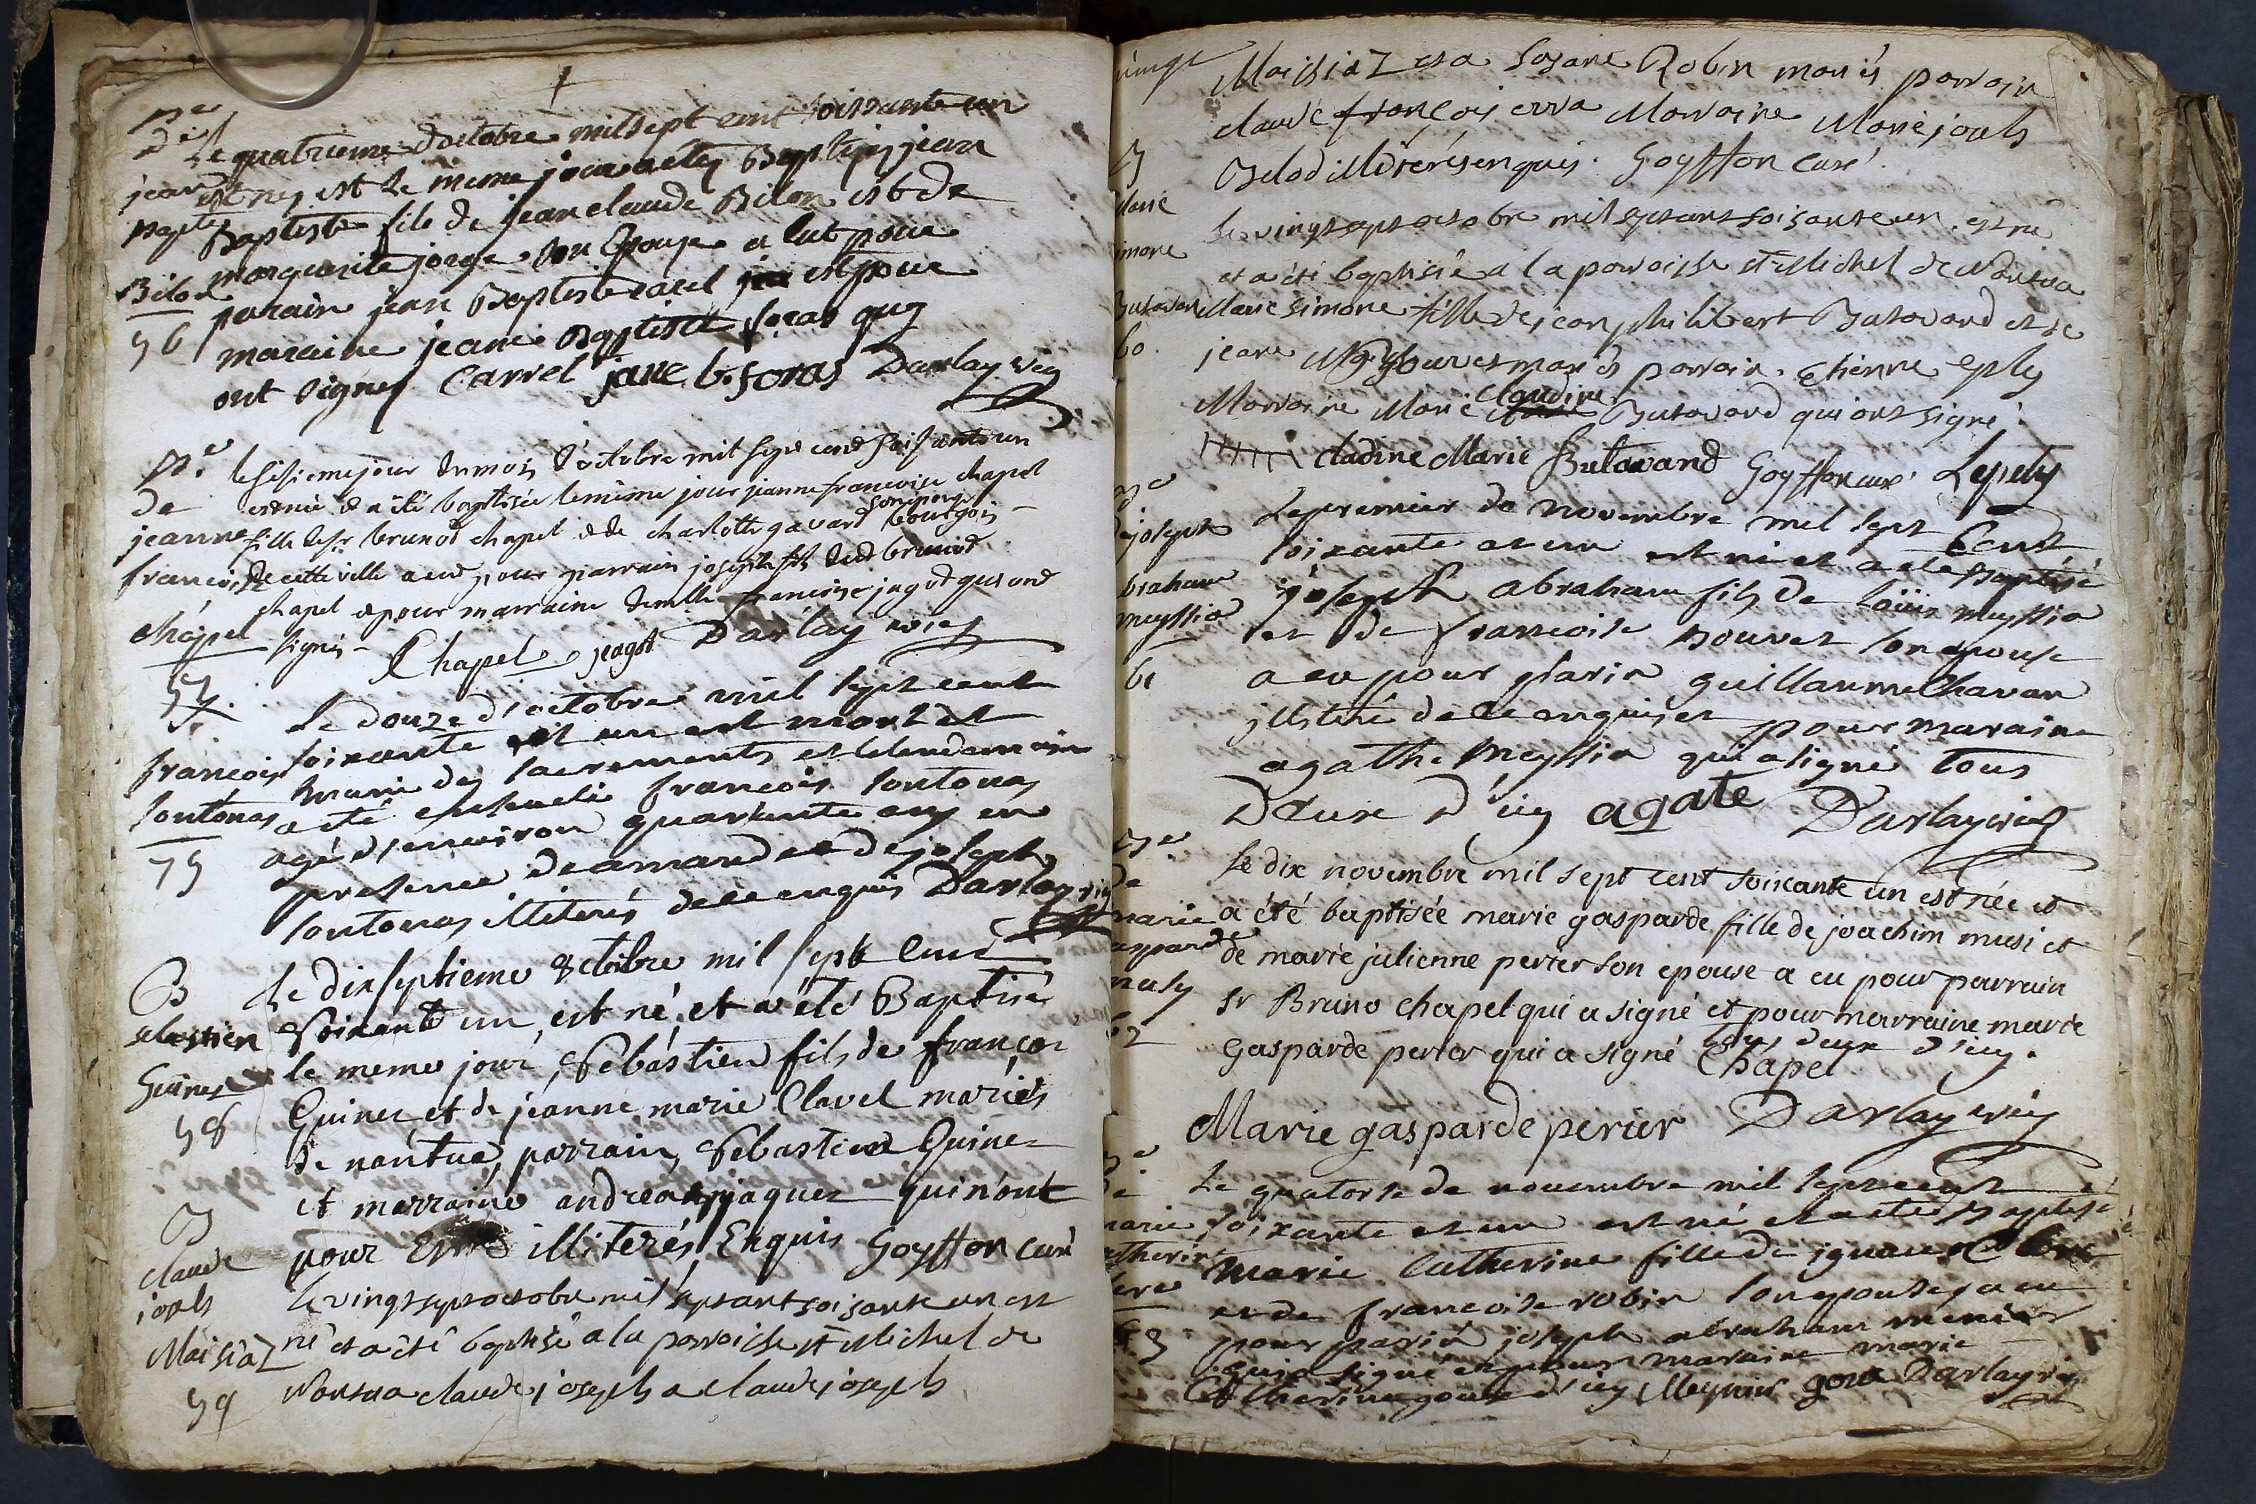 de
jean
Bapte
Bilod
56
Le quatrieme d'octobre mil sept cent soissante un
est ney est le meme jour a étéy Baptisey jean
Baptiste fils de jean claude Bilon est de
marguerite jorge son Epouse a lut pour
parain jean Baptiste carel est pour
maraine jeane Baptiste foras quy
ont signey Carrel jane b. foras Darlay vic
de
jeanne
francoise
chapel
57.
le sisieme jour du mois d'octobre mil sept cend soisante un
est née & a été baptisée le même jour jeanne francoise chapel
fille de sr brunod chapel & de charlotte gavard son epouse bourgois
de cette ville a eu pour parrain joseph fils dud brunod
chapel & pour marraine demlle francoise jagot qui ond
signés Chapel jagot Darlay vic
S.
francois
sontonas
75
Le douze d'octobre mil sept cent
soixante et un est mort et
muni des sacrements et le lendemain
a eté enseveli francois sontonas
agé d'environ quarante ans en
presence de amand et de joseph
sontonas illiterés de ce enquis Darlay vic
B
sebastien
Guinet
58
Le dixseptieme octobre mil sept cent
soixante un, est né, et a été Baptisé
le meme jour, Sébastien fils de françois
Guinet et de jeanne marie Clavel mariés
de nantua, parrain, Sébastien Guinet
et marraine andrea jaquet qui n'ont
pour illiterés Enquis Goyffon curé
B
claude
josph
Maissiaz
59
le vingt sept octobre mil sept cent soisante un est
né et a été baptisé a la parroisse st Michel de
Nantua claude joseph a claude joseph
Maissiaz et a Sosane Robin mariés parrain
claude françois erra Marraine Marie josph
Belod illiterés enquis. Goyffon Curé
B
Marie
simone
Butavand
60.
le vingt sept octobre mil sept cent soisante un. est né
et a été baptisée a la parroisse st Michel de Nantua
Marie Simone fille de jean philibert Butavand et de
jeane mariés parrain. Etienne eply
Marraine Marie Claudine Butavand qui ont signé.
cladine Marie Butavand Goyffon curé Leply
joseph
abraham
meyssia
61
Le premier de novembre mil sept Cent
soixante et un est né et a eté Baptisé
joseph abraham fils de loüis meyssia
et de francoise Bouvet son epouse
a eu pour parin guillaume Chavan
illiteré de ce enquis et pour maraine
agathe Meyssia qui a signé tous
Deux d'icy agate Darlay vic
de
marie
gasparde
musy
62
Le dix novembre mil sept cent soixante un est née et
a été baptisée marie gasparde fille de joachim musi et
de marie julienne perier son epouse a eu pour parrain
sr Bruno chapel qui a signé et pour marraine marie
gasparde perier qui a signé tous deux d'icy.
Chapel
Marie gasparde perier Darlay vic
de
marie
catherine
63
Le quatorse de novembre mil sept cent
soixante et un est né et a eté Baptisé
Marie Catherine fille de ignace
et de francoise robin son epouse a eu
pour parin joseph abraham menier
qui a signé et pour maraine marie
Catherine goux d'icy Meynier goux Darlay vic